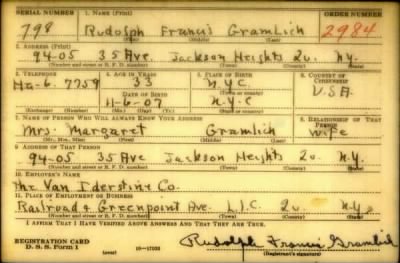 SERIAL NUMBER 1. NAME (Print) ORDER NUMBER
798 Rudolph Francis Gramlich 2984
(First) (Middle) (Last)
2. ADDRESS (Print)
94-05 35 Ave. Jackson Heights Qu. N.Y.
(Number and street or R. F. D. number) (Town) (County) (State)
3. TELEPHONE 4. AGE IN YEARS 5. PLACE OF BIRTH 6. COUNTRY OF CITIZENSHIP
Ha-6. 7759 33 N.Y.C.
DATE OF BIRTH (Town or county) U.S.A.
11-6-07 N.Y.C
(Exchange) (Number) (Mo.) (Day) (Yr.) (State or country)
7. NAME OF PERSON WHO WILL ALWAYS KNOW YOUR ADDRESS 8. RELATIONSHIP OF THAT PERSON
Mrs. Margaret Gramlich wife
(Mr., Mrs., Miss) (First) (Middle) (Last)
9. ADDRESS OF THAT PERSON
94-05 35 Ave Jackson Heights Qu. N.Y.
(Number and street or R. F. D. number) (Town) (County) (State)
10. EMPLOYER'S NAME
The Van Iderstine Co.
11. PLACE OF EMPLOYMENT OR BUSINESS
Railroad & Greenpoint Ave. L.I.C. Qu. N.Y.
(Number and street or R. F. D. number) (Town) (County) (State)
I AFFIRM THAT I HAVE VERIFIED ABOVE ANSWERS AND THAT THEY ARE TRUE.
REGISTRATION CARD
D. S. S. Form 1 16-17105 Rudolph Francis Gramlich
(Registrant's signature)